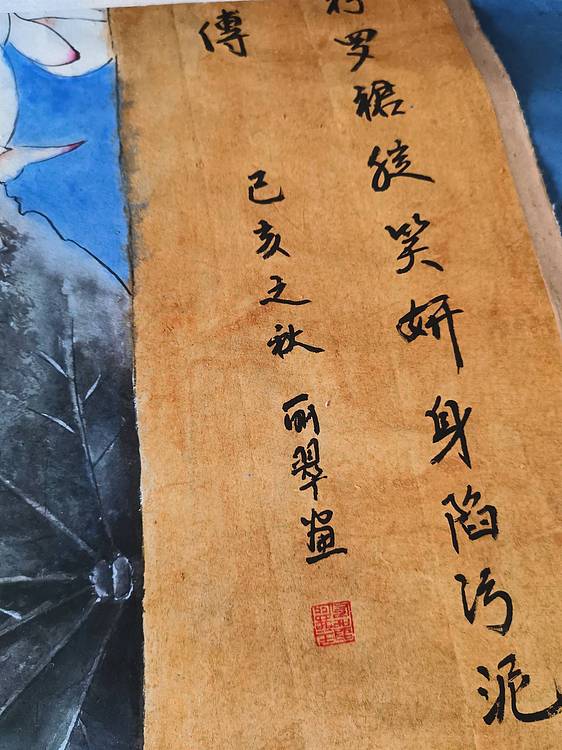 罗裙绽笑妍身陷污泥
傳 己亥之秋 丽翠画